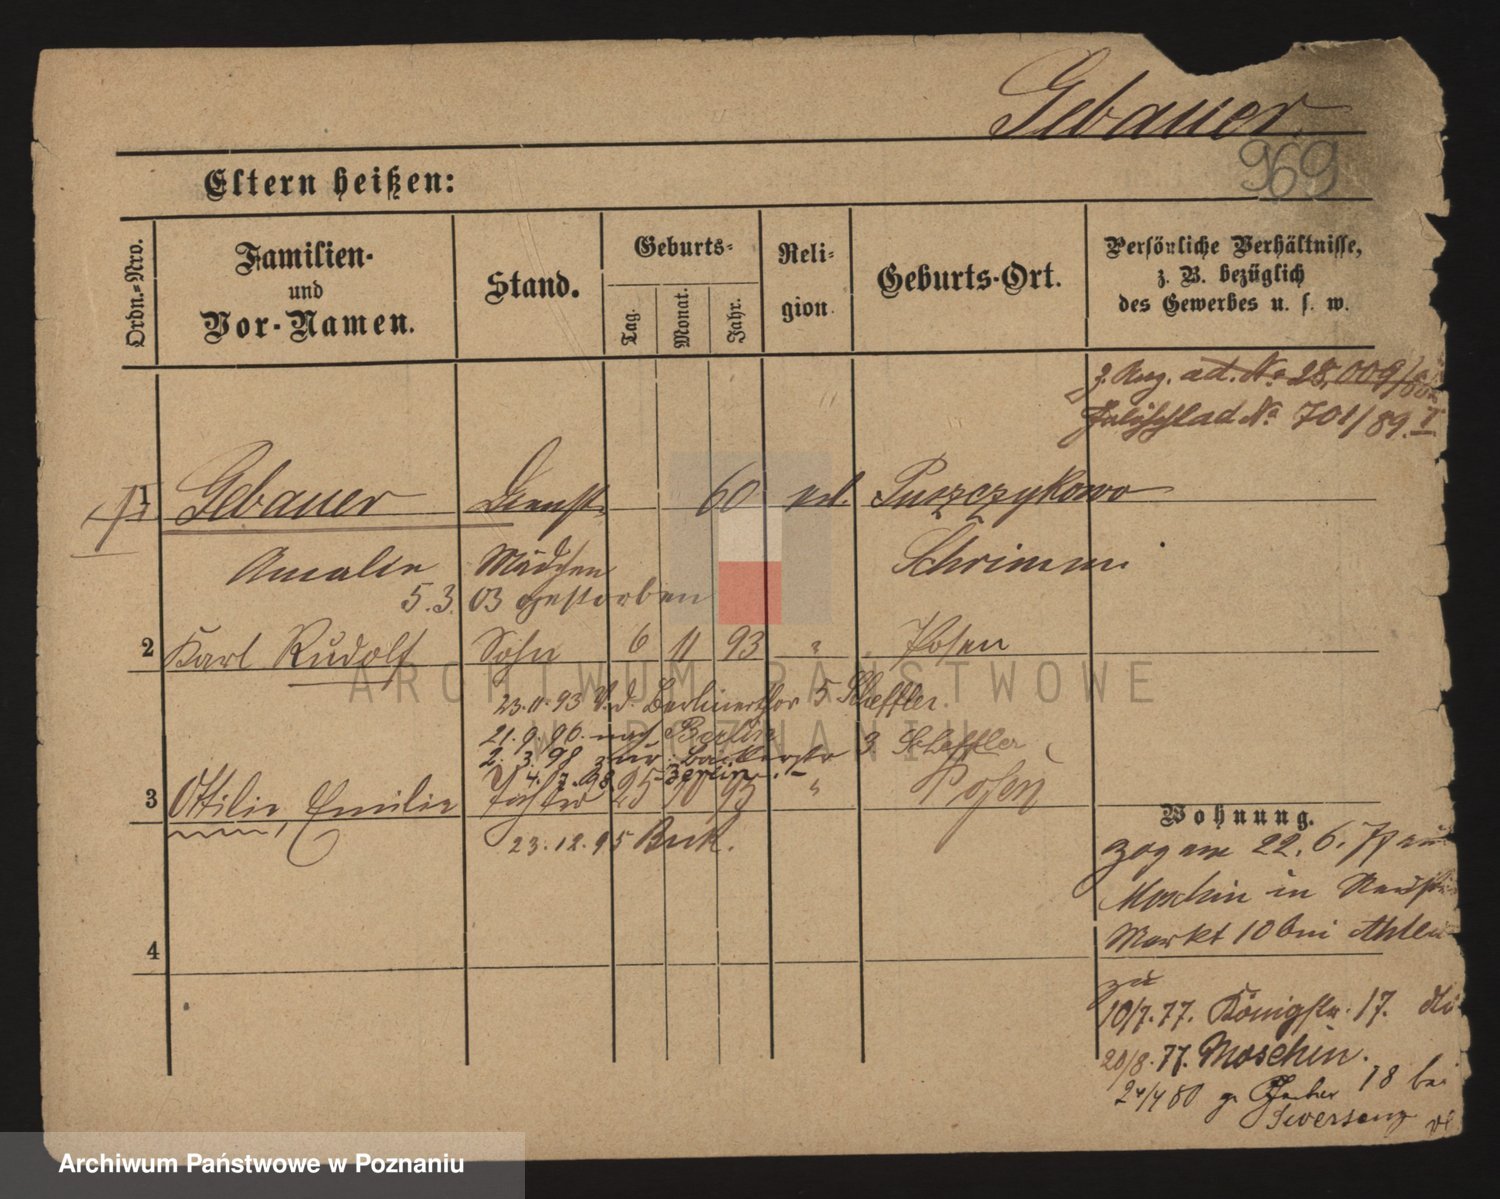 Gebauer.
969
Eltern heißen:
Ordn.-Nro.
Familien-
und
Vor-Namen.
Stand.
Geburts-
Tag.
Monat.
Jahr.
Reli-
gion.
Geburts-Ort.
Persönliche Verhältnisse,
z. B. bezüglich
des Gewerbes u. s. w.
ad. No 28,009/
No 701/89. II
1 Gebauer Dienst- 60 Puszczykowo
Amalie Mädchen Schrimm.
5.3. 03 gestorben
2 Karl Rudolf Sohn 6 11 93 " Posen
23.11.93 V. d. Berlinerthor 5 Scheffler.
21.9.96. nach Berlin
2.3.98 zur Bäckerstr 9. Scheffler
4.7.98 Berlin.-
3 Ottilie, Emilie Tochter 25 10 95 " Posen
23.12.95 Buk.
Wohnung.
zog am 22. 6. 77 aus
Moschin in
Markt 10 bei
zu
10/7.77. Königstr. 17.
20/8.77. Moschin.
24/4 80 gr 18 bei
4
ARCHIWUM PAŃSTWOWE
W POZNANIU
Archiwum Państwowe w Poznaniu